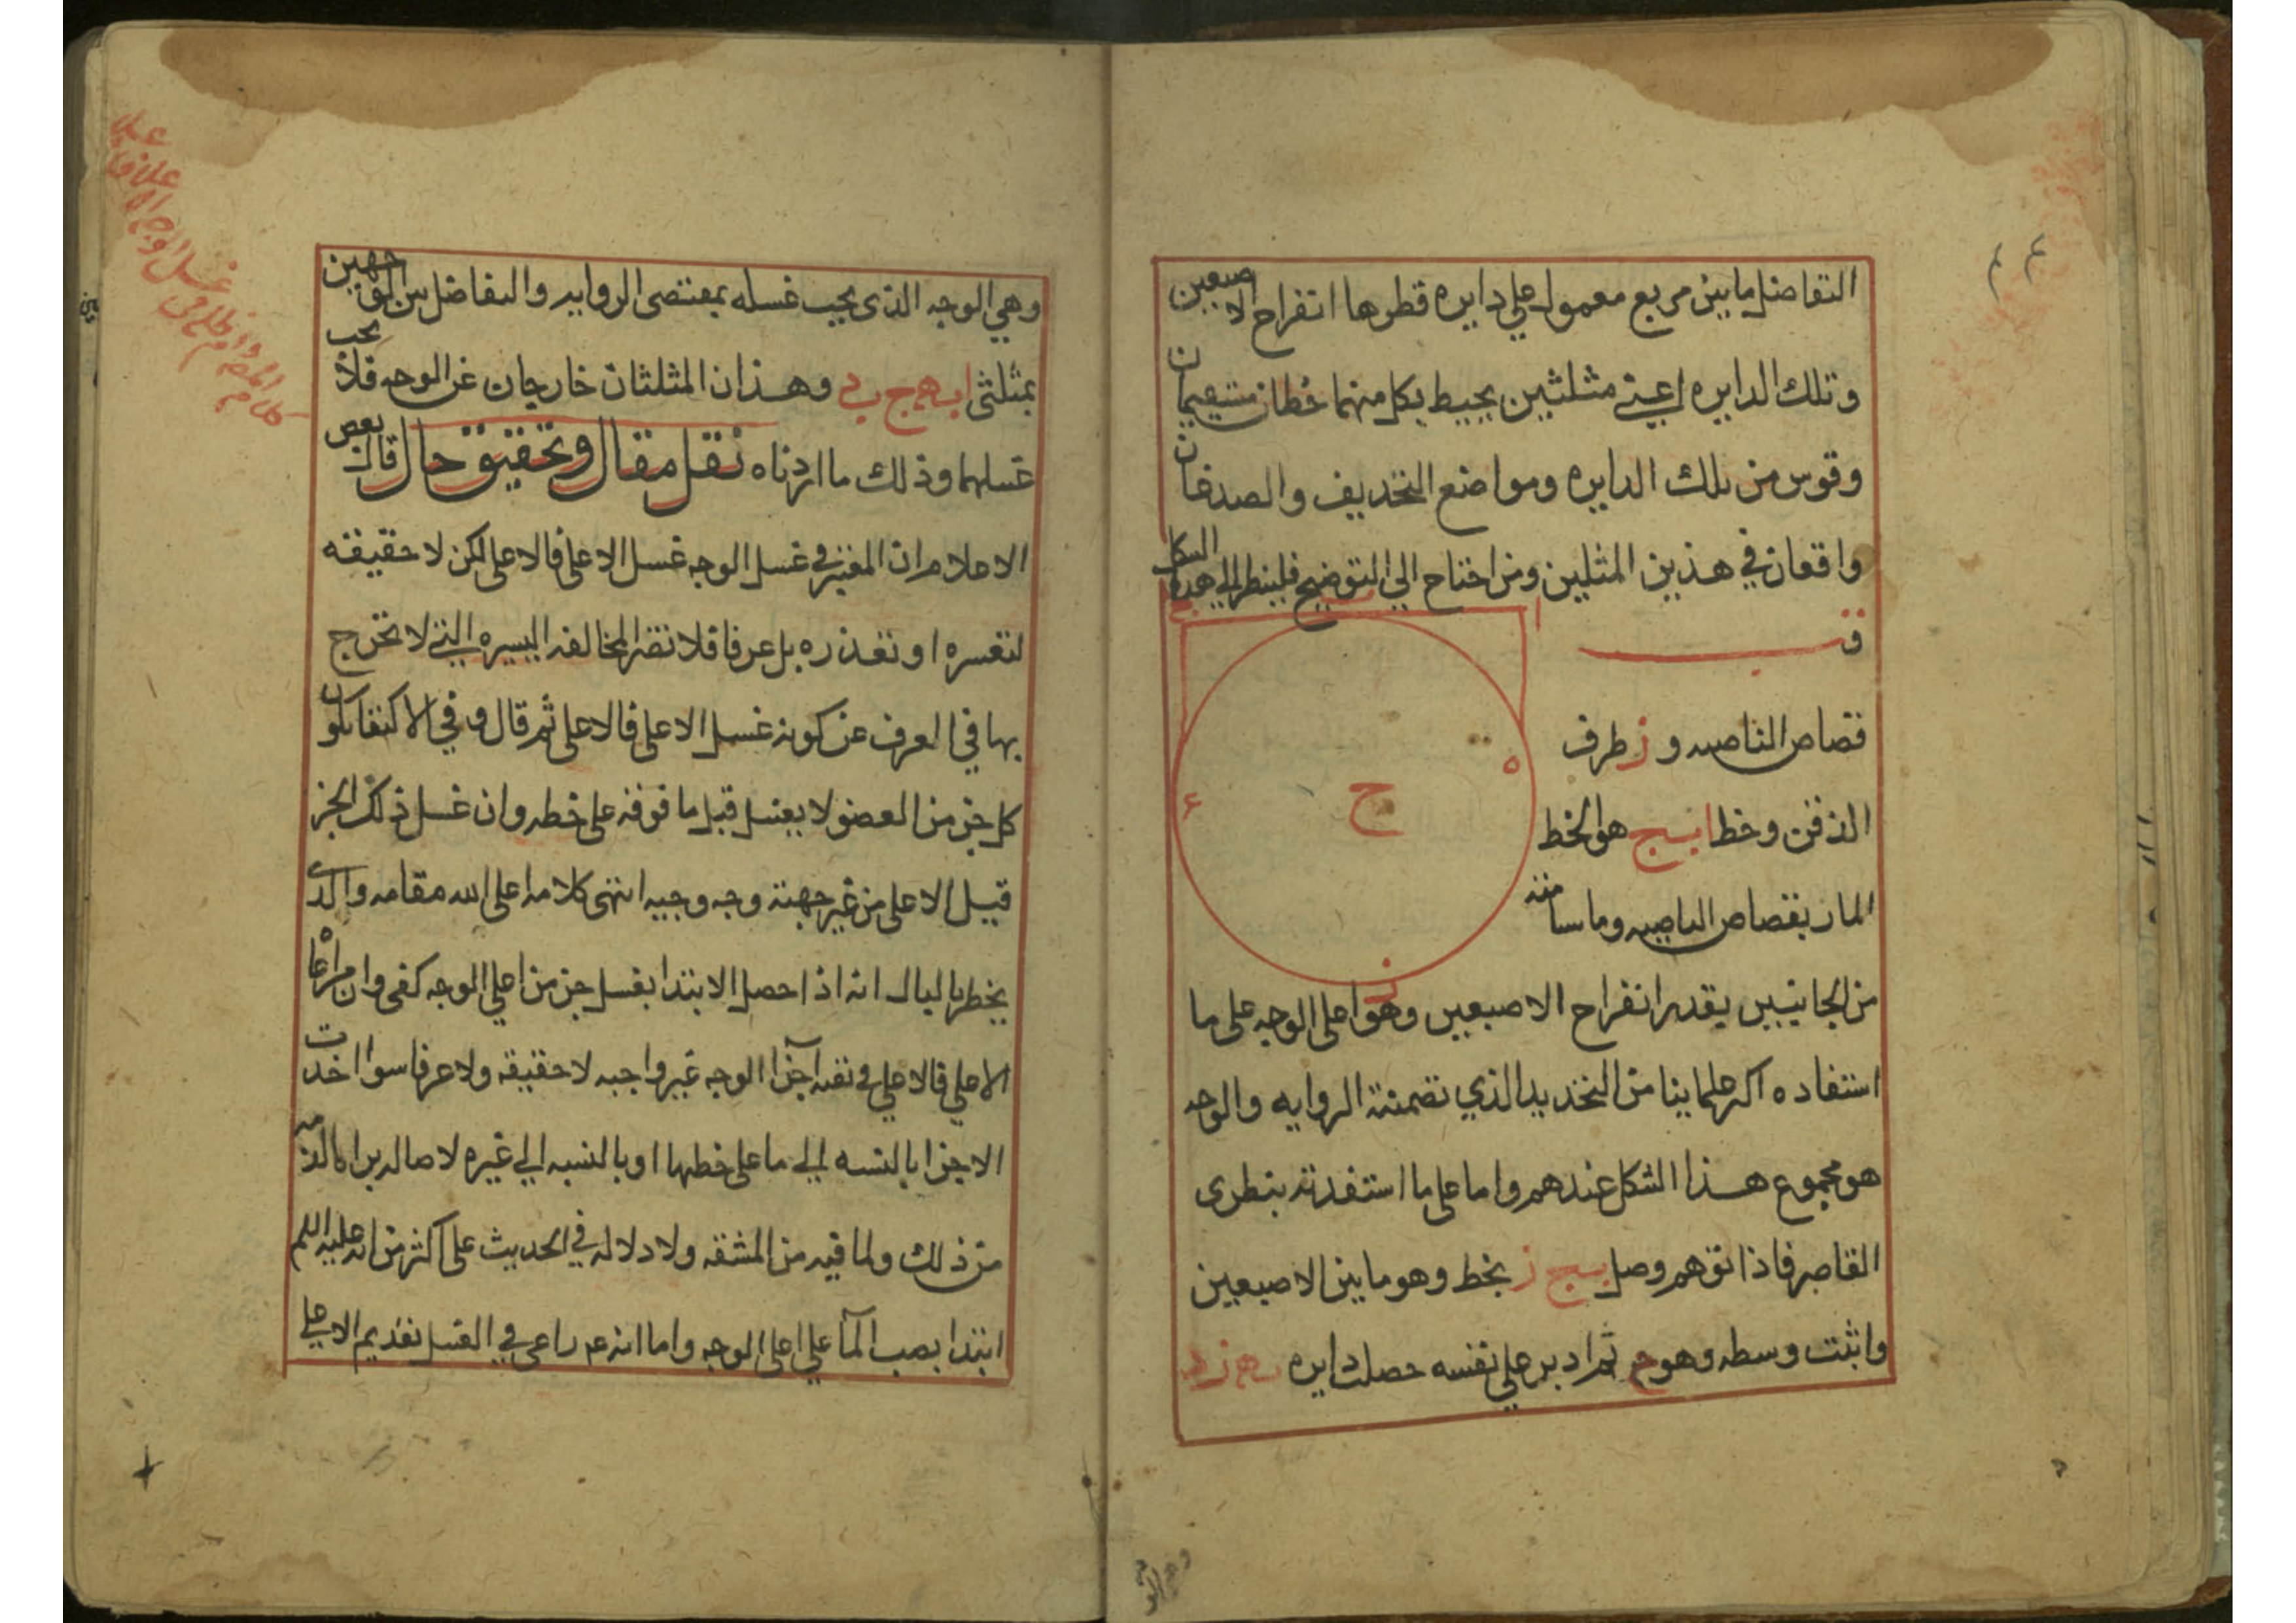 التفاضل ما بين مربع معمول على دايره قطرها انفراج الاصبعين
وتلك الدايره اعني مثلثين يحيط بكل منهما خطان مستقيمان
وقوس من تلك الدايره ومواضع التحديف والصدغان
واقعان في هذين المثلين ومن احتاج الي التوضيح فلينظر الي هذه الشكل
ف
قصاص الناصيه و ز طرف
الذقن وخط ا ب ج هو الخط
المار بقصاص الناصيه وما سامته
من الجانبين بقدر انفراج الاصبعين وهو اعلى الوجه على ما
استفاده اكثر علماينا من التحديد الذي تضمنته الروايه والوجه
هو مجموع هذا الشكل عندهم واما على ما استفدته بنظرى
القاصر فاذا توهم وصل ز بخط وهو ما بين الاصبعين
واثبت وسطه وهو ح ثم ادير على نفسه حصلت دايره
وهي الوجه الذى يجب غسله بمقتضى الروايه والتفاضل بين الوجهين
بمثلثى وهذان المثلثان خارجان عن الوجه فلا يجب
غسلهما وذلك ما اردناه نقل مقال وتحقيق حال قال بعض
الاعلام ان المعتبر في غسل الوجه غسل الاعلى فالاعلى لكن لا حقيقته
لتعسره او تعذره بل عرفا فلا تضر المخالفه اليسيره التي لا تخرج
بها في العرف عن كونه غسل الاعلى فالاعلى ثم قال وفي الاكتفا بكون
كل جزء من العضو لا يغسل قبل ما فوقه على خطه وان غسل ذلك الجز
قبل الاعلى من غير جهته وجه وجيه انتهى كلامه اعلى الله مقامه والذى
يخطر بالبال انه اذا حصل الابتدا بغسل جز من اعلى الوجه كفى وان مراعاه
الاعلى فالاعلى في بقيه آجزا الوجه غير واجبه لا حقيقه ولا عرفا سوا اخذت
الاجزا بالنسبه الي ما على خطها او بالنسبه الي غيره لاصاله براه الذمه
من ذلك ولما فيه من المشقه ولا دلاله في الحديث على اكثر من انه عليه السلم
ابتدا بصب المآ على اعلى الوجه واما انه عم راعى في الغسل تقديم الاعلى